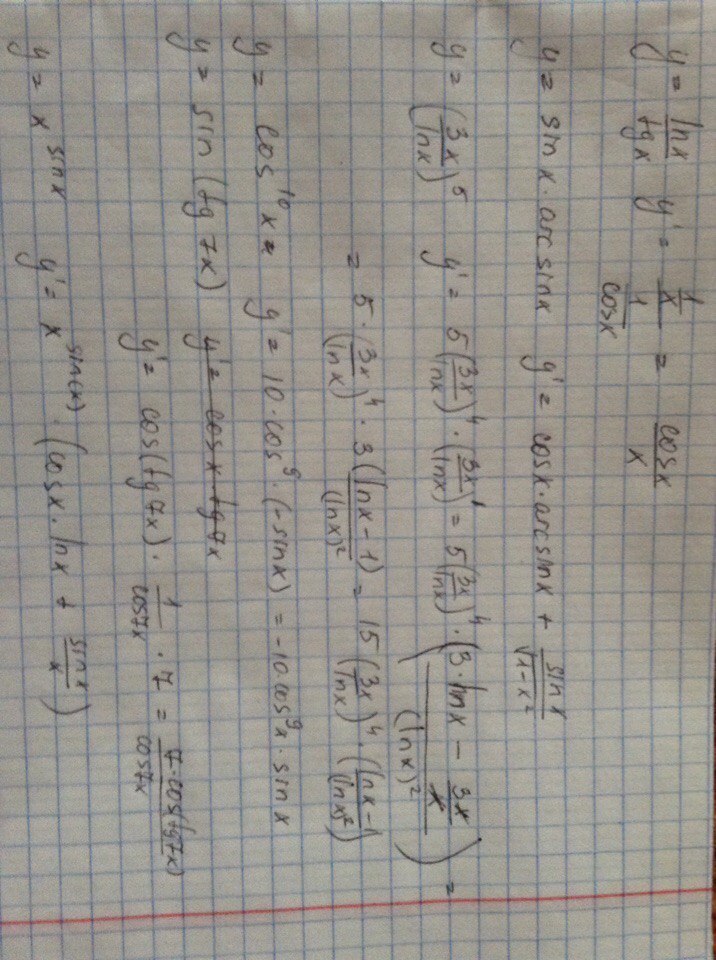 y = lnx/tgx y' = (1/x)/(1/cosx) = cosx/x
y = sinx · arcsinx y' = cosx · arcsinx + sinx/√(1-x²)
y = (3x/lnx)⁵ y' = 5(3x/lnx)⁴ · (3x/lnx)' = 5(3x/lnx)⁴ · ((3·lnx - 3x/x)/(lnx)²) =
= 5 · (3x/lnx)⁴ · 3(lnx-1)/(lnx)² = 15(3x/lnx)⁴ · ((lnx-1)/(lnx)²)
y = cos¹⁰x = y' = 10·cos⁹·(-sinx) = -10cos⁹x · sinx
y = sin(tg7x) y' = cosx · tg7x
y' = cos(tg7x) · 1/cos7x · 7 = 7·cos(tg7x)/cos7x
y = x^sinx y' = x^sin(x) · (cosx · lnx + sinx/x)